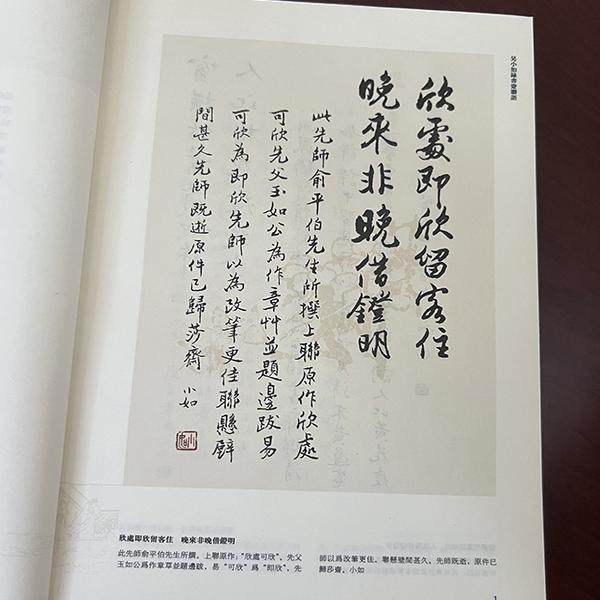 吳小如録書齋聯語
欣處即欣留客住
晚來非晚借鐙明
此先師俞平伯先生所撰上聯原作欣處
可欣先父玉如公為作章艸並題邊跋易
可欣為即欣先師以為改筆更佳聯懸壁
間甚久先師既逝原件已歸莎齋 小如
欣處即欣留客住　晚來非晚借鐙明
此先師俞平伯先生所撰。上聯原作："欣處可欣"。先父
玉如公爲作章草並題邊跋，易"可欣"爲"即欣"。先
師以爲改筆更佳。聯懸壁間甚久。先師既逝，原件已
歸莎齋。小如
1